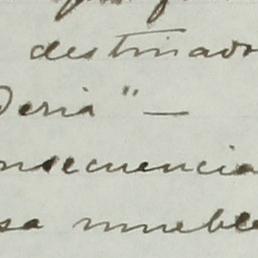 destinado
deria" —
nsecuencia
sa mueble